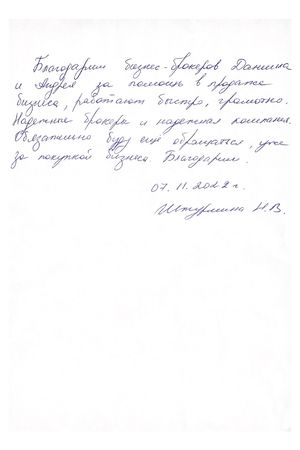 Благодарим бизнес-брокеров Даниила
и Андрея за помощь в продаже
бизнеса, работают быстро, грамотно.
Надежные брокеры и надежная компания.
Обязательно буду ещё обращаться, уже
за покупкой бизнеса Благодарим.
07.11.2022 г.
Штурмина Н.В.